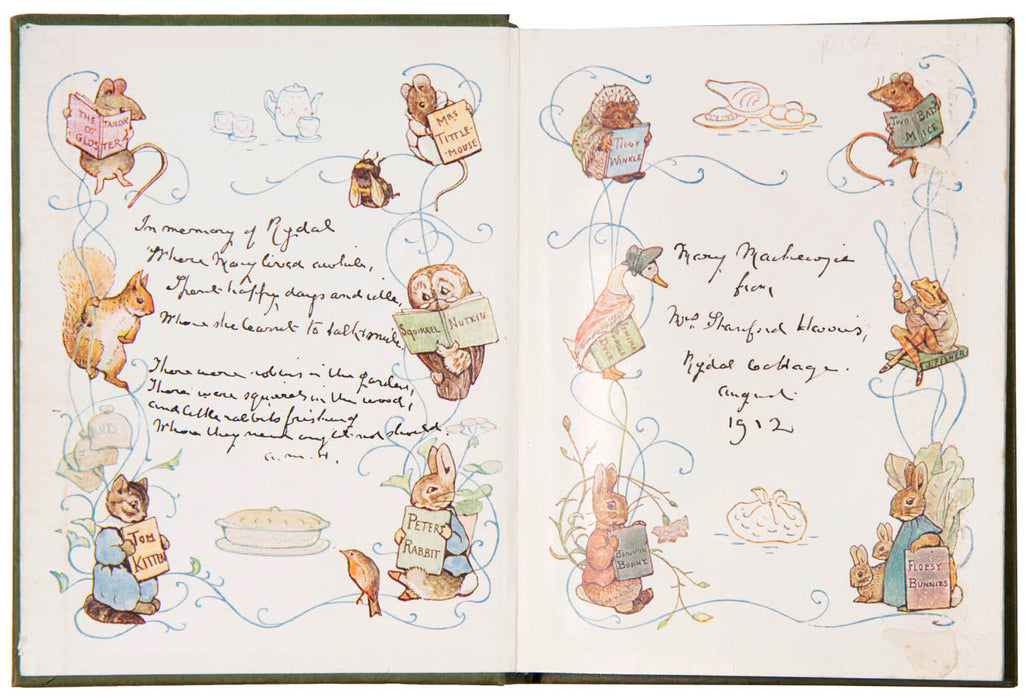 THE TAILOR
OF
GLOSTER-
MRS
TITTLE-
MOUSE
In memory of Rydal
Where Mary lived awhile,
Spent happy days and idle,
Where she learnt to talk & smile.
SQUIRREL NUTKIN
There were robins in the garden,
There were squirrels in the wood,
and little rabbits frisking
Where they ought should.
a.m.H.
TOM
KITTEN
PETER
RABBIT
TIGGY
WINKLE
TWO BAD
MICE
Mary Mackenzie
from
Mrs Stanford Harris,
Rydal Cottage.
August
1912
JEMIMA
PUDDLE
DUCK
J. FISHER
BENJAMIN
BUNNY
FLOPSY
BUNNIES